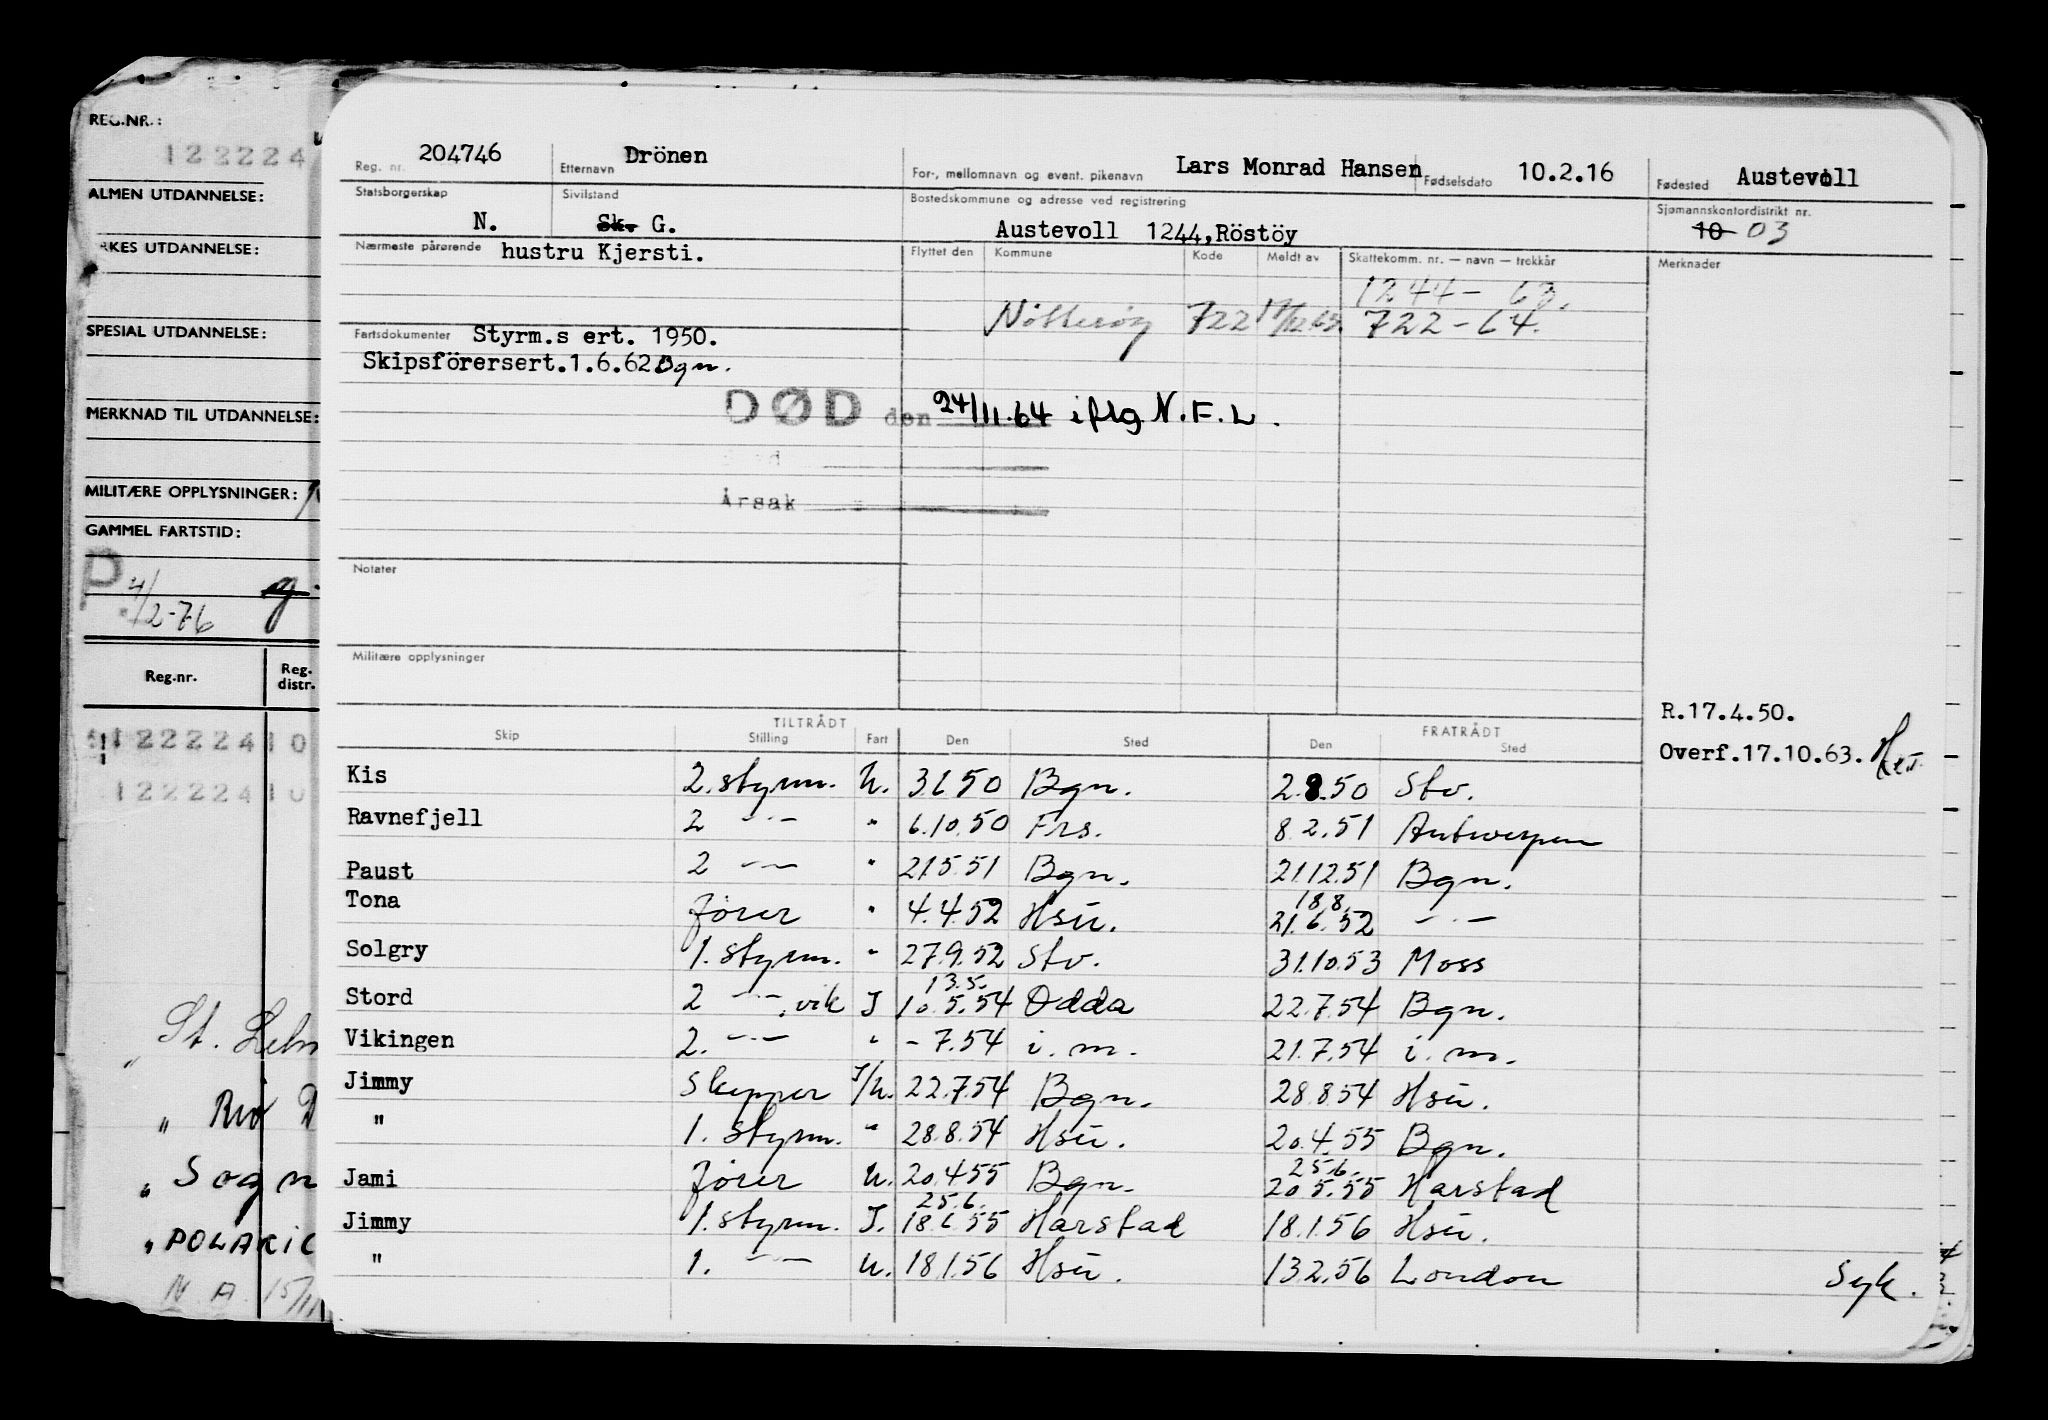 REG.NR.:
122224
ALMEN UTDANNELSE:
RKES UTDANNELSE:
SPESIAL UTDANNELSE:
MERKNAD TIL UTDANNELSE:
MILITÆRE OPPLYSNINGER:
GAMMEL FARTSTID:
P 4/2-76
Reg.nr. Reg. distr.
122224 10
122224 10
" Rio D
" Sogn
" POLARIC
N. A. 15/11
Reg. nr. 204746 Etternavn Drönen For-, mellomnavn og event. pikenavn Lars Monrad Hansen Fødselsdato 10.2.16 Fødested Austevoll
Statsborgerskap N. Sivilstand Sk. G. Bostedskommune og adresse ved registrering Austevoll 1244,Röstöy Sjømannskontordistrikt nr. 10 03
Nærmeste pårørende hustru Kjersti. Flyttet den Kommune Kode Meldt av Skattekomm. nr. — navn — trekkår Merknader
1244 - 63.
Nøtterøy 722 17/12.63. 722 - 64.
Fartsdokumenter Styrm.s ert. 1950.
Skipsförersert.1.6.62 Bgn.
DØD den 24/11.64 iflg N.F.L.
Årsak
Notater
Militære opplysninger
R.17.4.50.
Overf.17.10.63.
TILTRÅDT FRATRÅDT
Skip Stilling Fart Den Sted Den Sted
Kis 2. styrm. U. 3.6.50 Bgn. 2.8.50 Stv.
Ravnefjell 2 -"- " 6.10.50 Frs. 8.2.51 Antwerpen
Paust 2 -"- " 21.5.51 Bgn. 21.12.51 Bgn.
18.8.
Tona fører " 4.4.52 Hsu. 21.6.52 -"-
Solgry 1. styrm. " 27.9.52 Stv. 31.10.53 Moss
13.5.
Stord 2 -"- , vik J 10.5.54 Odda 22.7.54 Bgn.
Vikingen 2. -"- " - 7.54 i. m. 21.7.54 i. m.
Jimmy Skipper J/U. 22.7.54 Bgn. 28.8.54 Hsu.
" 1. styrm. " 28.8.54 Hsu. 20.4.55 Bgn.
25.6.
Jami fører U. 20.4.55 Bgn. 20.5.55 Harstad
25.6.
Jimmy 1. styrm. J. 18.6.55 Harstad 18.1.56 Hsu.
" 1. -"- U. 18.1.56 Hsu. 13.2.56 London Syk.